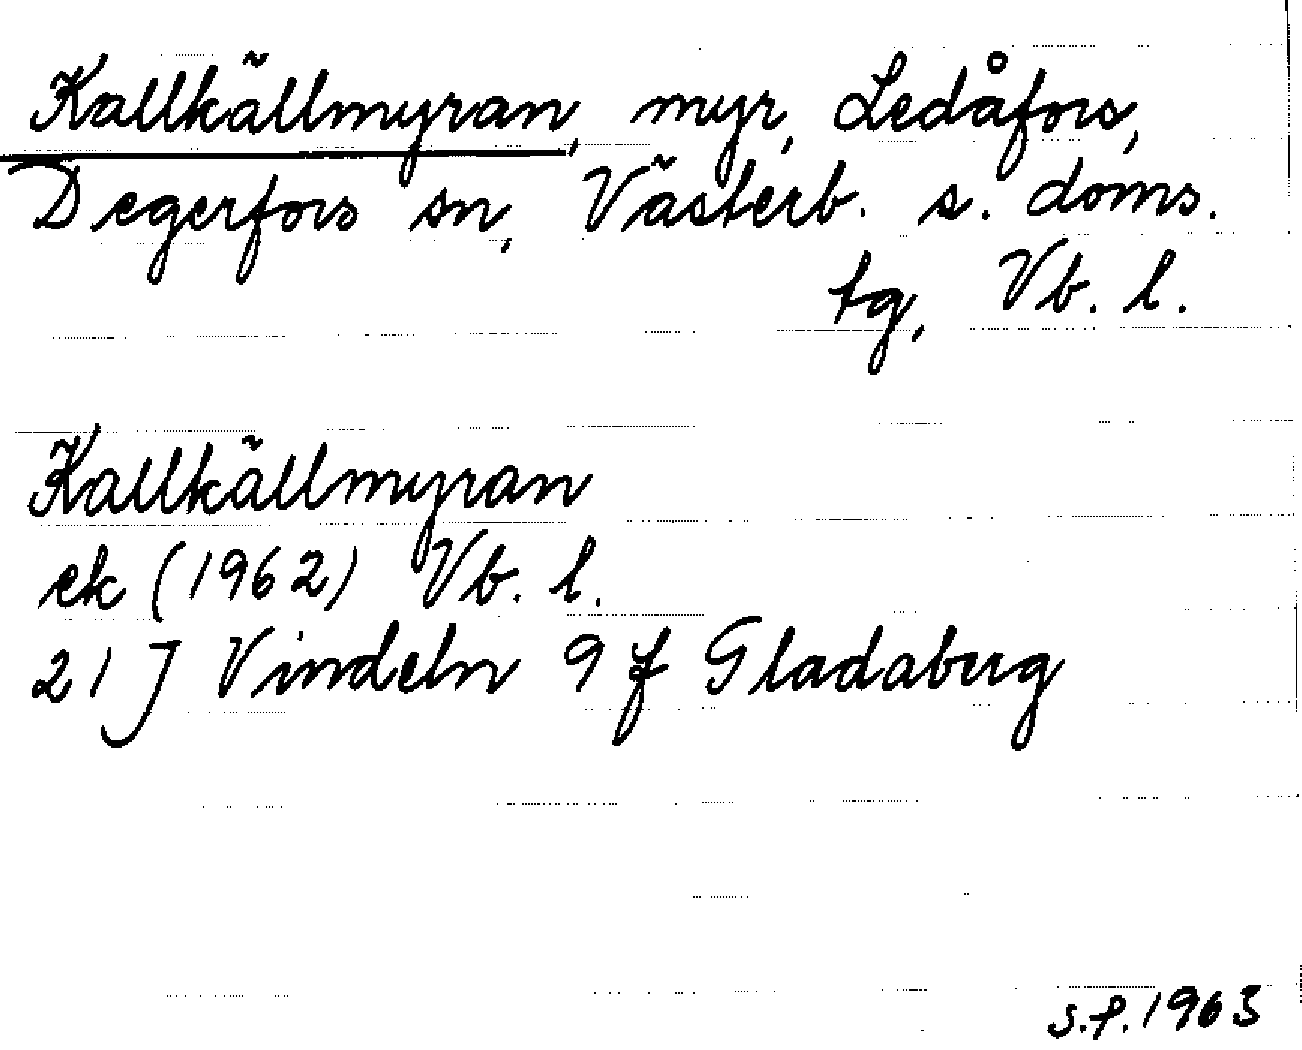 Kallkällmyran, myr, Ledåfors,
Degerfors sn, Västerb. s. doms.
tg, Vb. l.
Kallkällmyran
ek (1962) Vb. l.
21 J Vindeln 9 f Gladaberg
s.f. 1963